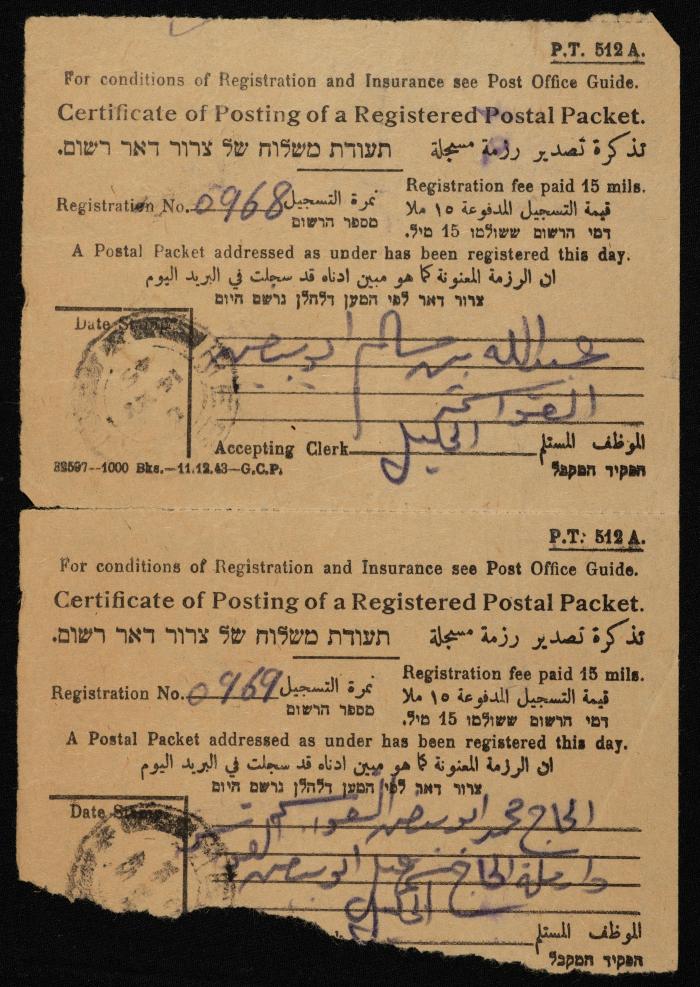 P.T. 512 A.
For conditions of Registration and Insurance see Post Office Guide.
Certificate of Posting of a Registered Postal Packet.
تذكرة تصدير رزمة مسجلة תעודת משלוח של צרור דאר רשום.
Registration fee paid 15 mils.
Registration No. 0968 نمرة التسجيل
قيمة التسجيل المدفوعة ١٥ ملا
מספר הרשום
דמי הרשום ששולמו 15 מיל.
A Postal Packet addressed as under has been registered this day.
ان الرزمة المعنونة كما هو مبين ادناه قد سجلت في البريد اليوم
צרור דאר לפי המען דלהלן נרשם היום
Date Stamp
عبدالله بن سالم
القواسمة
الخليل
Accepting Clerk الموظف المستلم
הפקיד המקבל
32597--1000 Bks.--11.12.43--G.C.P.
P.T. 512 A.
For conditions of Registration and Insurance see Post Office Guide.
Certificate of Posting of a Registered Postal Packet.
تذكرة تصدير رزمة مسجلة תעודת משלוח של צרור דאר רשום.
Registration fee paid 15 mils.
Registration No. 0969 نمرة التسجيل
قيمة التسجيل المدفوعة ١٥ ملا
מספר הרשום
דמי הרשום ששולמו 15 מיל.
A Postal Packet addressed as under has been registered this day.
ان الرزمة المعنونة كما هو مبين ادناه قد سجلت في البريد اليوم
צרור דאר לפי המען דלהלן נרשם היום
Date Stamp
الحاج محمد
الحاج
الخليل
الموظف المستلم
הפקיד המקבל